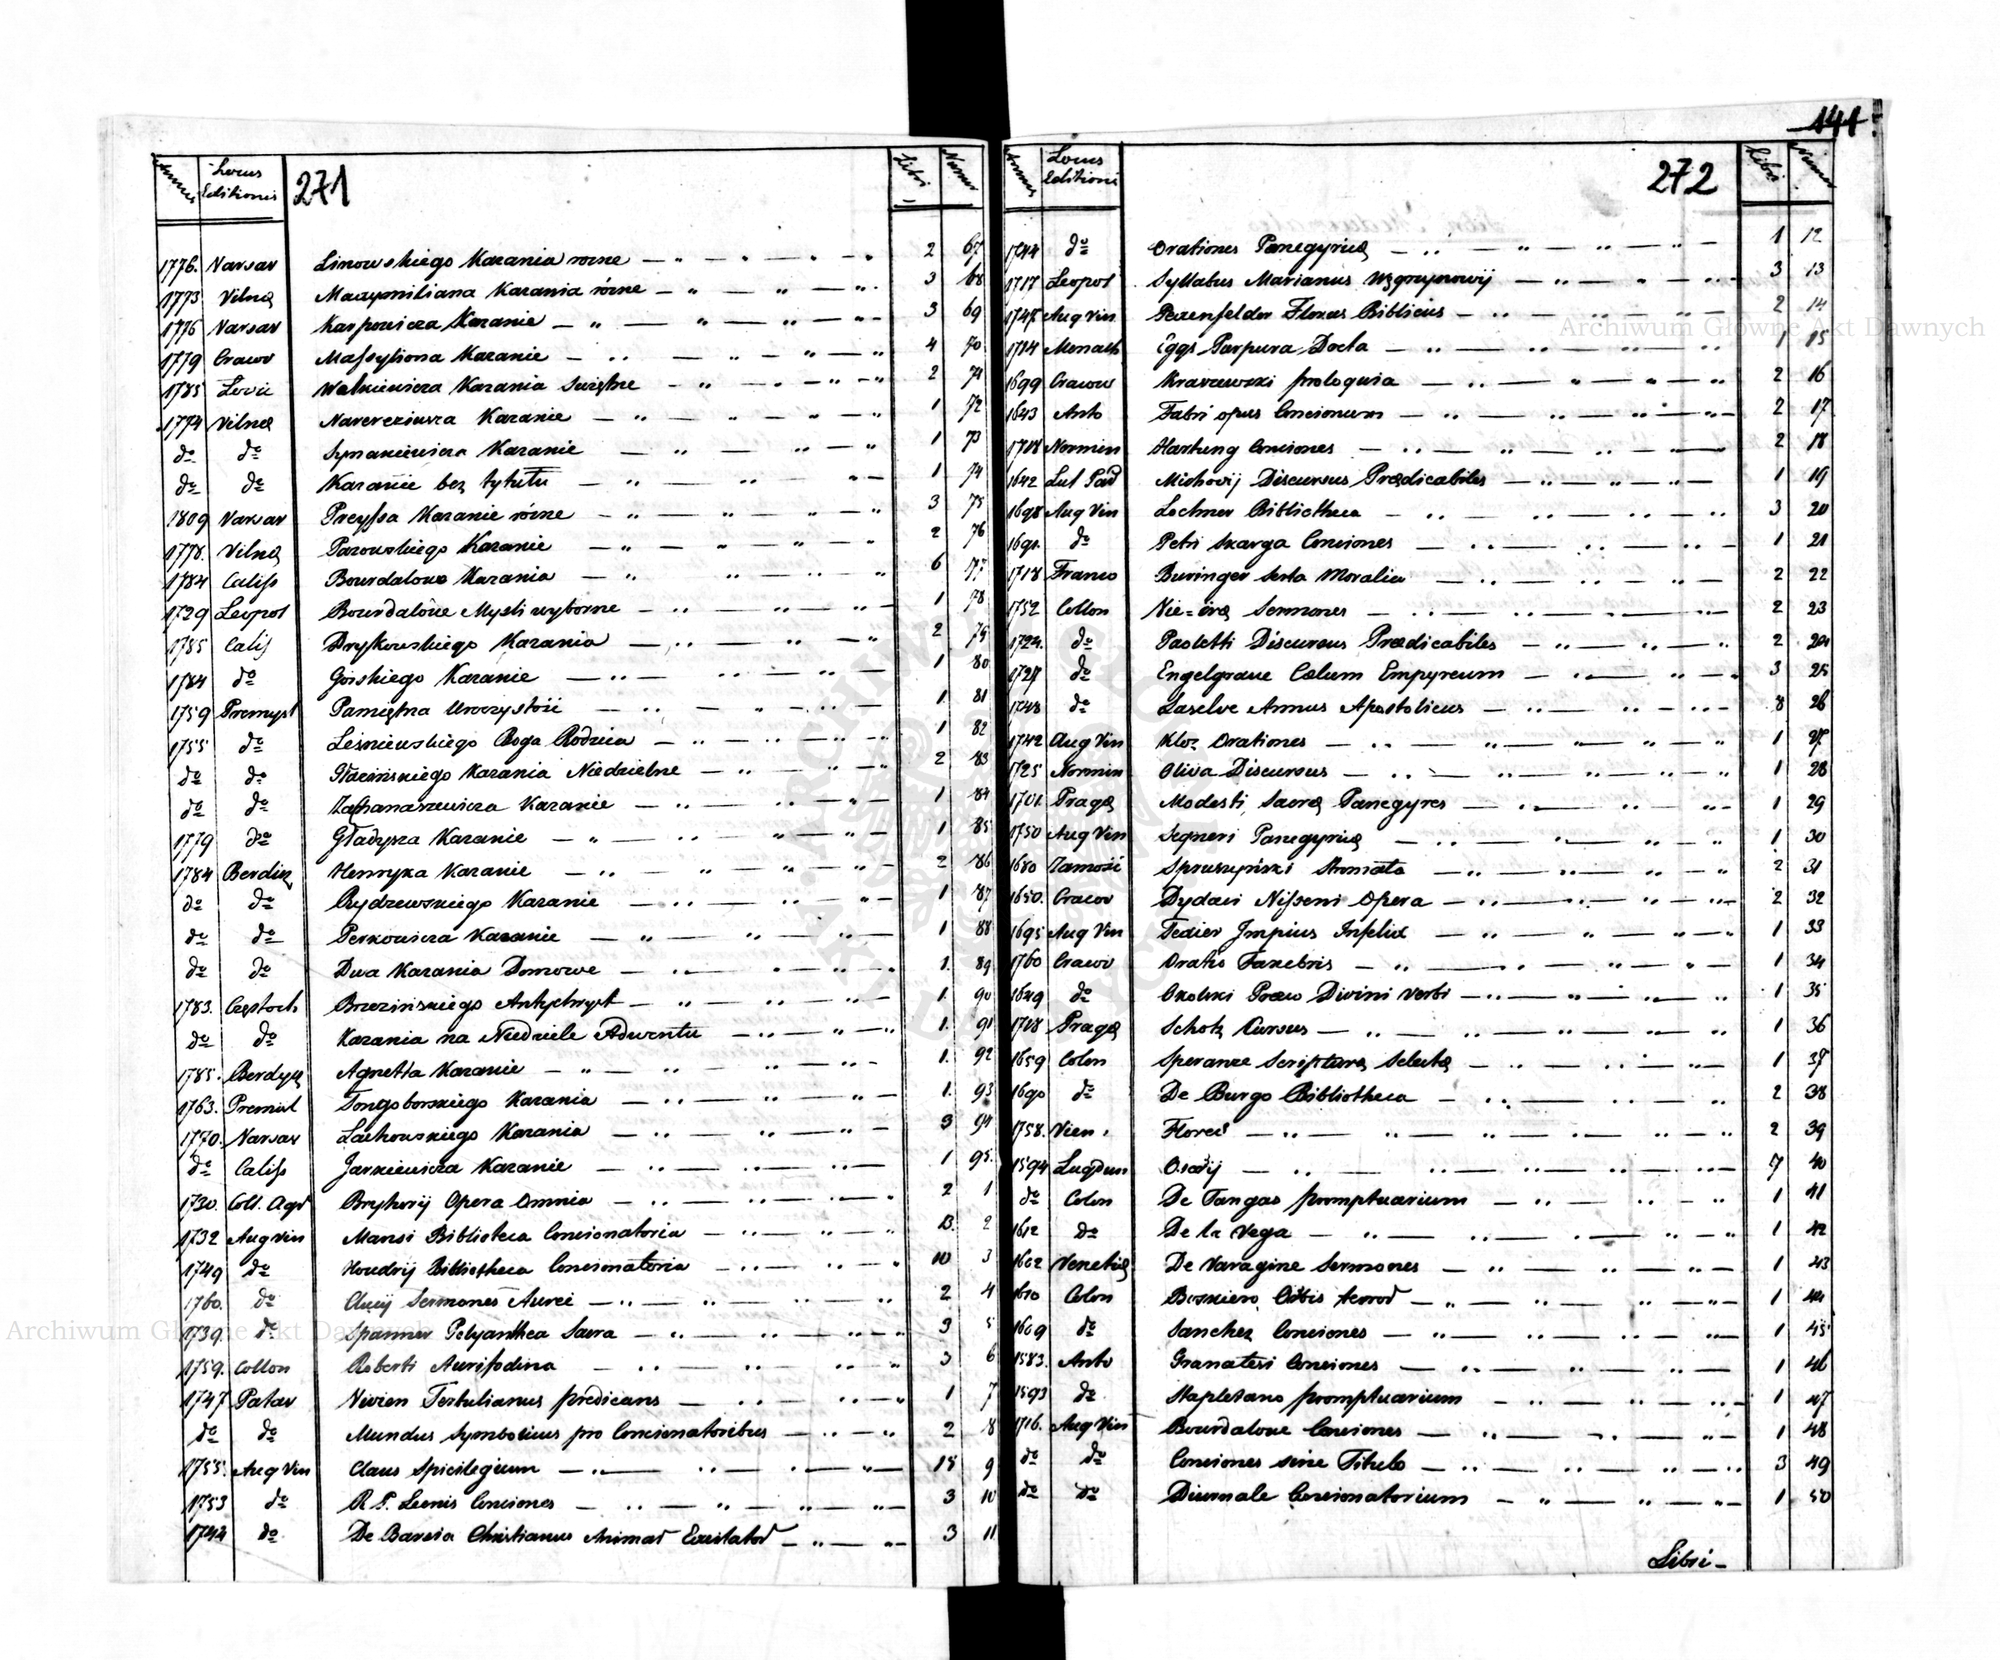 141
Annus Locus Editionis 271 Libri Numer
1776. Varsav Linowskiego Kazania rozne 2 67
1773 Vilnę Maxymiliana Kazania rózne 3 68
1776 Varsav Karpowicza Kazanie 3 69
1779 Cracov Massyliona Kazanie 4 70
1785 Lovic Walkiewicza Kazania Swiętne 2 71
1774 Vilnę Kazanie 1 72
do do Szymakiewicza Kazanie 1 73
do do Kazanie bez tytułu 1 74
1809 Varsav Preyssa Kazanie rózne 3 75
1778. Vilnę Kazanie 2 76
1784 Caliss Bourdaloue Kazania 6 77
1729 Leopol Bourdaloue Mysli wyborne 1 78
1785 Calis Kazania 2 79
1784 do Górskiego Kazanie 1 80
1759 Premysl Pamiętna 1 81
1755 do Leśniewskiego Boga Rodzica 1 82
do do Kazania Niedzielne 2 83
do do Kazanie 1 84
1779 do Gładysza Kazanie 1 85
1784 Berdicz Henryka Kazanie 2 86
do do Rydzewskiego Kazanie 1 87
do do Perkowicza Kazanie 1 88
do do Dwa Kazania Domowe 1. 89
1783. Częstoch Brzezińskiego Antychryst 1. 90
do do Kazania na Niedziele Adwentu 1. 91
1785. Agnetta Kazanie 1. 92
1763. Premisl Kazania 1. 93
1770. Varsav Lachowskiego Kazania 3 94
do Caliss Jarkiewicza Kazanie 1 95.
1730. Coll. Agr Opera Omnia 2 1
1732 Aug Vin Mansi Biblioteca Concionatoria 13. 2
1749 do Houdrij Bibliotheca Concionatoria 10 3
1760. do Sermones Aurei 2 4
1739. do Spanner Polyanthea Sacra 3 5
1759. Collon Roberti Aurifodina 3 6
1747 Patav Nivien Tertulianus prędicans 1 7
do do Mundus Symbolicus pro Concionatoribus 2 8
1755. Aug Vin Claus Spicilegium 18 9
1753 do R. P. Conciones 3 10
1744 do De Barzia Christianus Animar Excitator 3 11
Annus Locus Editioni 272 Libri Numer
1744 do Orationes Panegyricę 1 12
1717 Leopol Syllabus Marianus Węgrzynowij 3 13
1747. Aug Vin Flores Biblicus 2 14
1714 Monach Eggs Purpura Docta 1 15
1699 Cracov Kraszewski proloquia 2 16
1643 Ant Fabri opus Concionum 2 17
1718 Normin Hartung Conciones 2 18
1642 Lut Par Discursus Prædicabiles 1 19
1698 Aug Vin Lochner Bibliotheca 3 20
1691. do Petri Skarga Conciones 1 21
1718 Franco Buringer Serta Moralia 2 22
1752 Collon Sermones 2 23
1724. do Paoletti Discursus Prædicabiles 2 24
1727 do Engelgrave Cælum Empyreum 3 25
1748 do Laselve Annus Apostolicus 8 26
1742 Aug Vin Orationes 1 27
1725 Normin Oliva Discursus 1 28
1701. Pragę Modesti Sacrę Panegyres 1 29
1750 Aug Vin Segneri Panegyricę 1 30
1680 Zamosc Stromata 2 31
1650. Cracov Dydaci Nisseni Opera 2 32
1695 Aug Vin Impius Infelix 1 33
1760 Cracov Oratio Funebris 1 34
1649 do Okolski Præco Divini Verbi 1 35
1718 Pragę Scholz Cursus 1 36
1659 Colon Speranze Scripturę Selectę 1 37
1690 do De Burgo Bibliotheca 2 38
1758. Vien Flores 2 39
1594 Lugdun Osorij 7 40
do Colon promptuarium 1 41
1612 do De la Vega 1 42
1602 Venetię De Varagine Sermones 1 43
1610 Colon Bosniero Orbis terror 1 44
1609 do Sanchez Conciones 1 45
1583. Ant Granatesi Conciones 1 46
1593 do Stapletano promptuarium 1 47
1716. Aug Vin Bourdaloue Conciones 1 48
do do Conciones sine Titulo 3 49
do do Diurnale Concionatorium 1 50
Libri
Archiwum Główne Akt Dawnych
Archiwum Główne Akt Dawnych